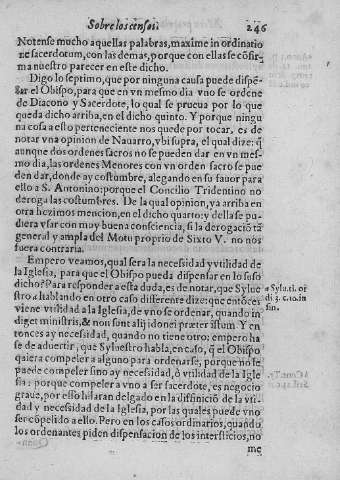 Sobre los censos. 246
Notense mucho aquellas palabras, maxime in ordinatio
ne sacerdotum, con las demas, porque con ellas se cõfir-
ma nuestro parecer en este dicho.
Digo lo septimo, que por ninguna causa puede dispẽ-
sar el Obispo, para que en vn mesmo dia vno se ordene
de Diacono y Sacerdote, lo qual se prueua por lo que
queda dicho arriba, en el dicho quinto. Y porque ningu
na cosa a esto perteneciente nos quede por tocar, es de
notar vna opinion de Nauarro, vbi supra, el qual dize: q̃
aunque dos ordenes sacros no se pueden dar en vn mes-
mo dia, las ordenes Menores con vn orden sacro se pue
den dar, donde ay costumbre, alegando en su fauor para
ello a S. Antonino: porque el Concilio Tridentino no
deroga las costumbres. De la qual opinion, ya arriba en
otra hezimos mencion, en el dicho quarto: y della se pu-
diera vsar con muy buena consciencia, si la derogaciõ tã
general y ampla del Motu proprio de Sixto V. no nos
fuera contraria.
Empero veamos, qual sera la necessidad y vtilidad de
la Iglesia, para que el Obispo pueda dispensar en lo suso
dicho? Para responder a esta duda, es de notar, que Sylue
stro a hablando en otro caso differente dize: que entõces
viene vtilidad a la Iglesia, de vno se ordenar, quando in
diget ministris, & non sunt alij idonei præter istum. Y en
tonces ay necessidad, quando no tiene otro: empero ha
se de aduertir, que Syluestro habla, en caso, q̃ el Obispo
quiera compeler a alguno para ordenarse, porque no le
puede compeler sino ay necessidad, ò vtilidad de la Igle
sia: porque compeler a vno a ser sacerdote, es negocio
graue, por esso hilaran delgado en la diffiniciõ de la vti-
dad y necessidad de la Iglesia, por las quales puede vno
ser cõpelido a ello. Pero en los casos ordinarios, quando
los ordenantes piden dispensacion de los intersticios, no
me
a Sylu. ti. or
di 3. c. 10. in
fin.